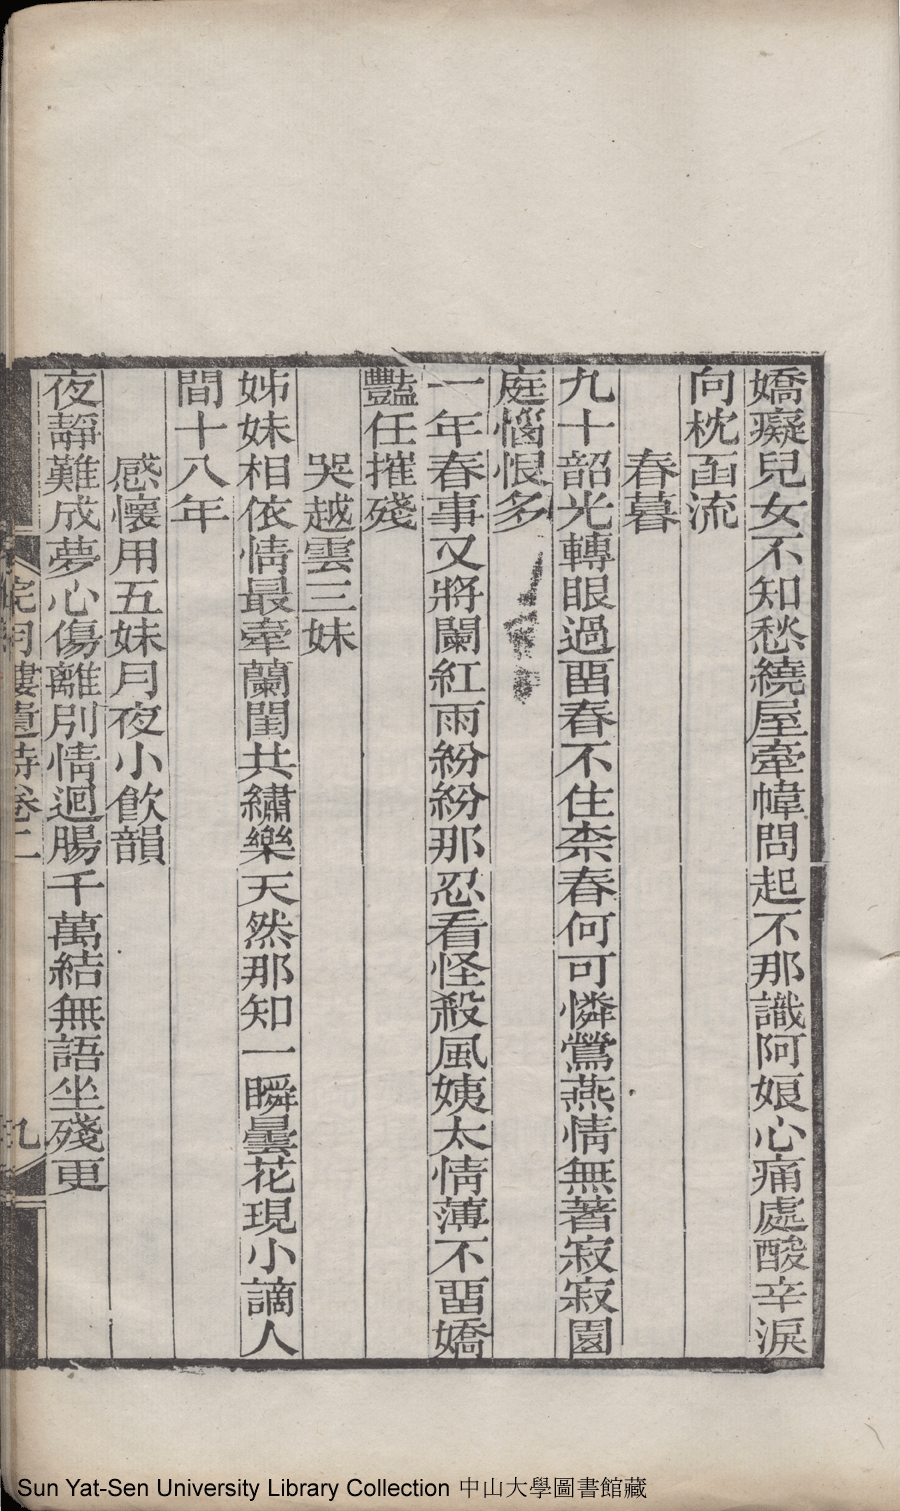 嬌癡兒女不知愁繞屋牽幃問起不那識阿娘心痛處酸辛淚
向枕函流
春暮
九十韶光轉眼過畱春不住柰春何可憐鶯燕情無著寂寂園
庭惱恨多
一年春事又將闌紅雨紛紛那忍看怪殺風姨太情薄不畱嬌
豔任摧殘
哭越雲三妹
姊妹相依情最牽蘭閨共繡樂天然那知一瞬曇花現小謫人
間十八年
感懷用五妹月夜小飮韻
夜靜難成夢心傷離別情迴腸千萬結無語坐殘更
月樓遺詩卷二
九
Sun Yat-Sen University Library Collection 中山大學圖書館藏